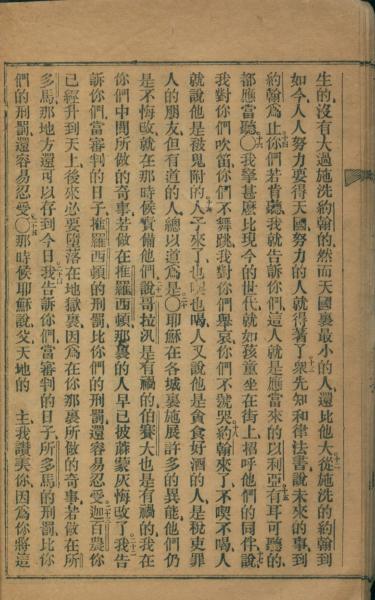 生的、沒有大過施洗約翰的、然而天國裏最小的人、還比他大、十二從施洗的約翰到
如今、人人努力要得天國、努力的人就得著了、十三衆先知和律法書說未來的事、到
約翰爲止、十四你們若肯聽、我就告訴你們、這人就是應當來的以利亞、十五有耳可聽的、
都應當聽、○十六我拏甚麽比現今的世代、就如孩童坐在街上、招呼他們的同伴說、十七
我對你們吹笛、你們不舞跳、我對你們舉哀、你們不號哭、十八約翰來了、不喫不喝、人
就說他是被鬼附的、十九人子來了、也喫也喝、人又說他是貪食好酒的人、是稅吏罪
人的朋友、但有道的人、總以道爲是、○二十耶穌在各城裏施展許多的異能、他們仍
是不悔改、就在那時候責備他們說、二一哥拉汎是有禍的、伯賽大也是有禍的、我在
你們中間所做的奇事、若做在推羅西頓、那裏的人、早已披蔴蒙灰悔改了、二二我告
訴你們、當審判的日子、推羅西頓的刑罰、比你們的刑罰、還容易忍受、二三迦百農、你
已經升到天上、後來必要墮落在地獄裏、因爲在你那裏所做的奇事、若做在所
多馬、那地方還可以存到今日、二四我告訴你們、當審判的日子、所多馬的刑罰、比你
們的刑罰、還容易忍受、○二五那時候耶穌說、父、天地的　主、我讚美你、因爲你將這